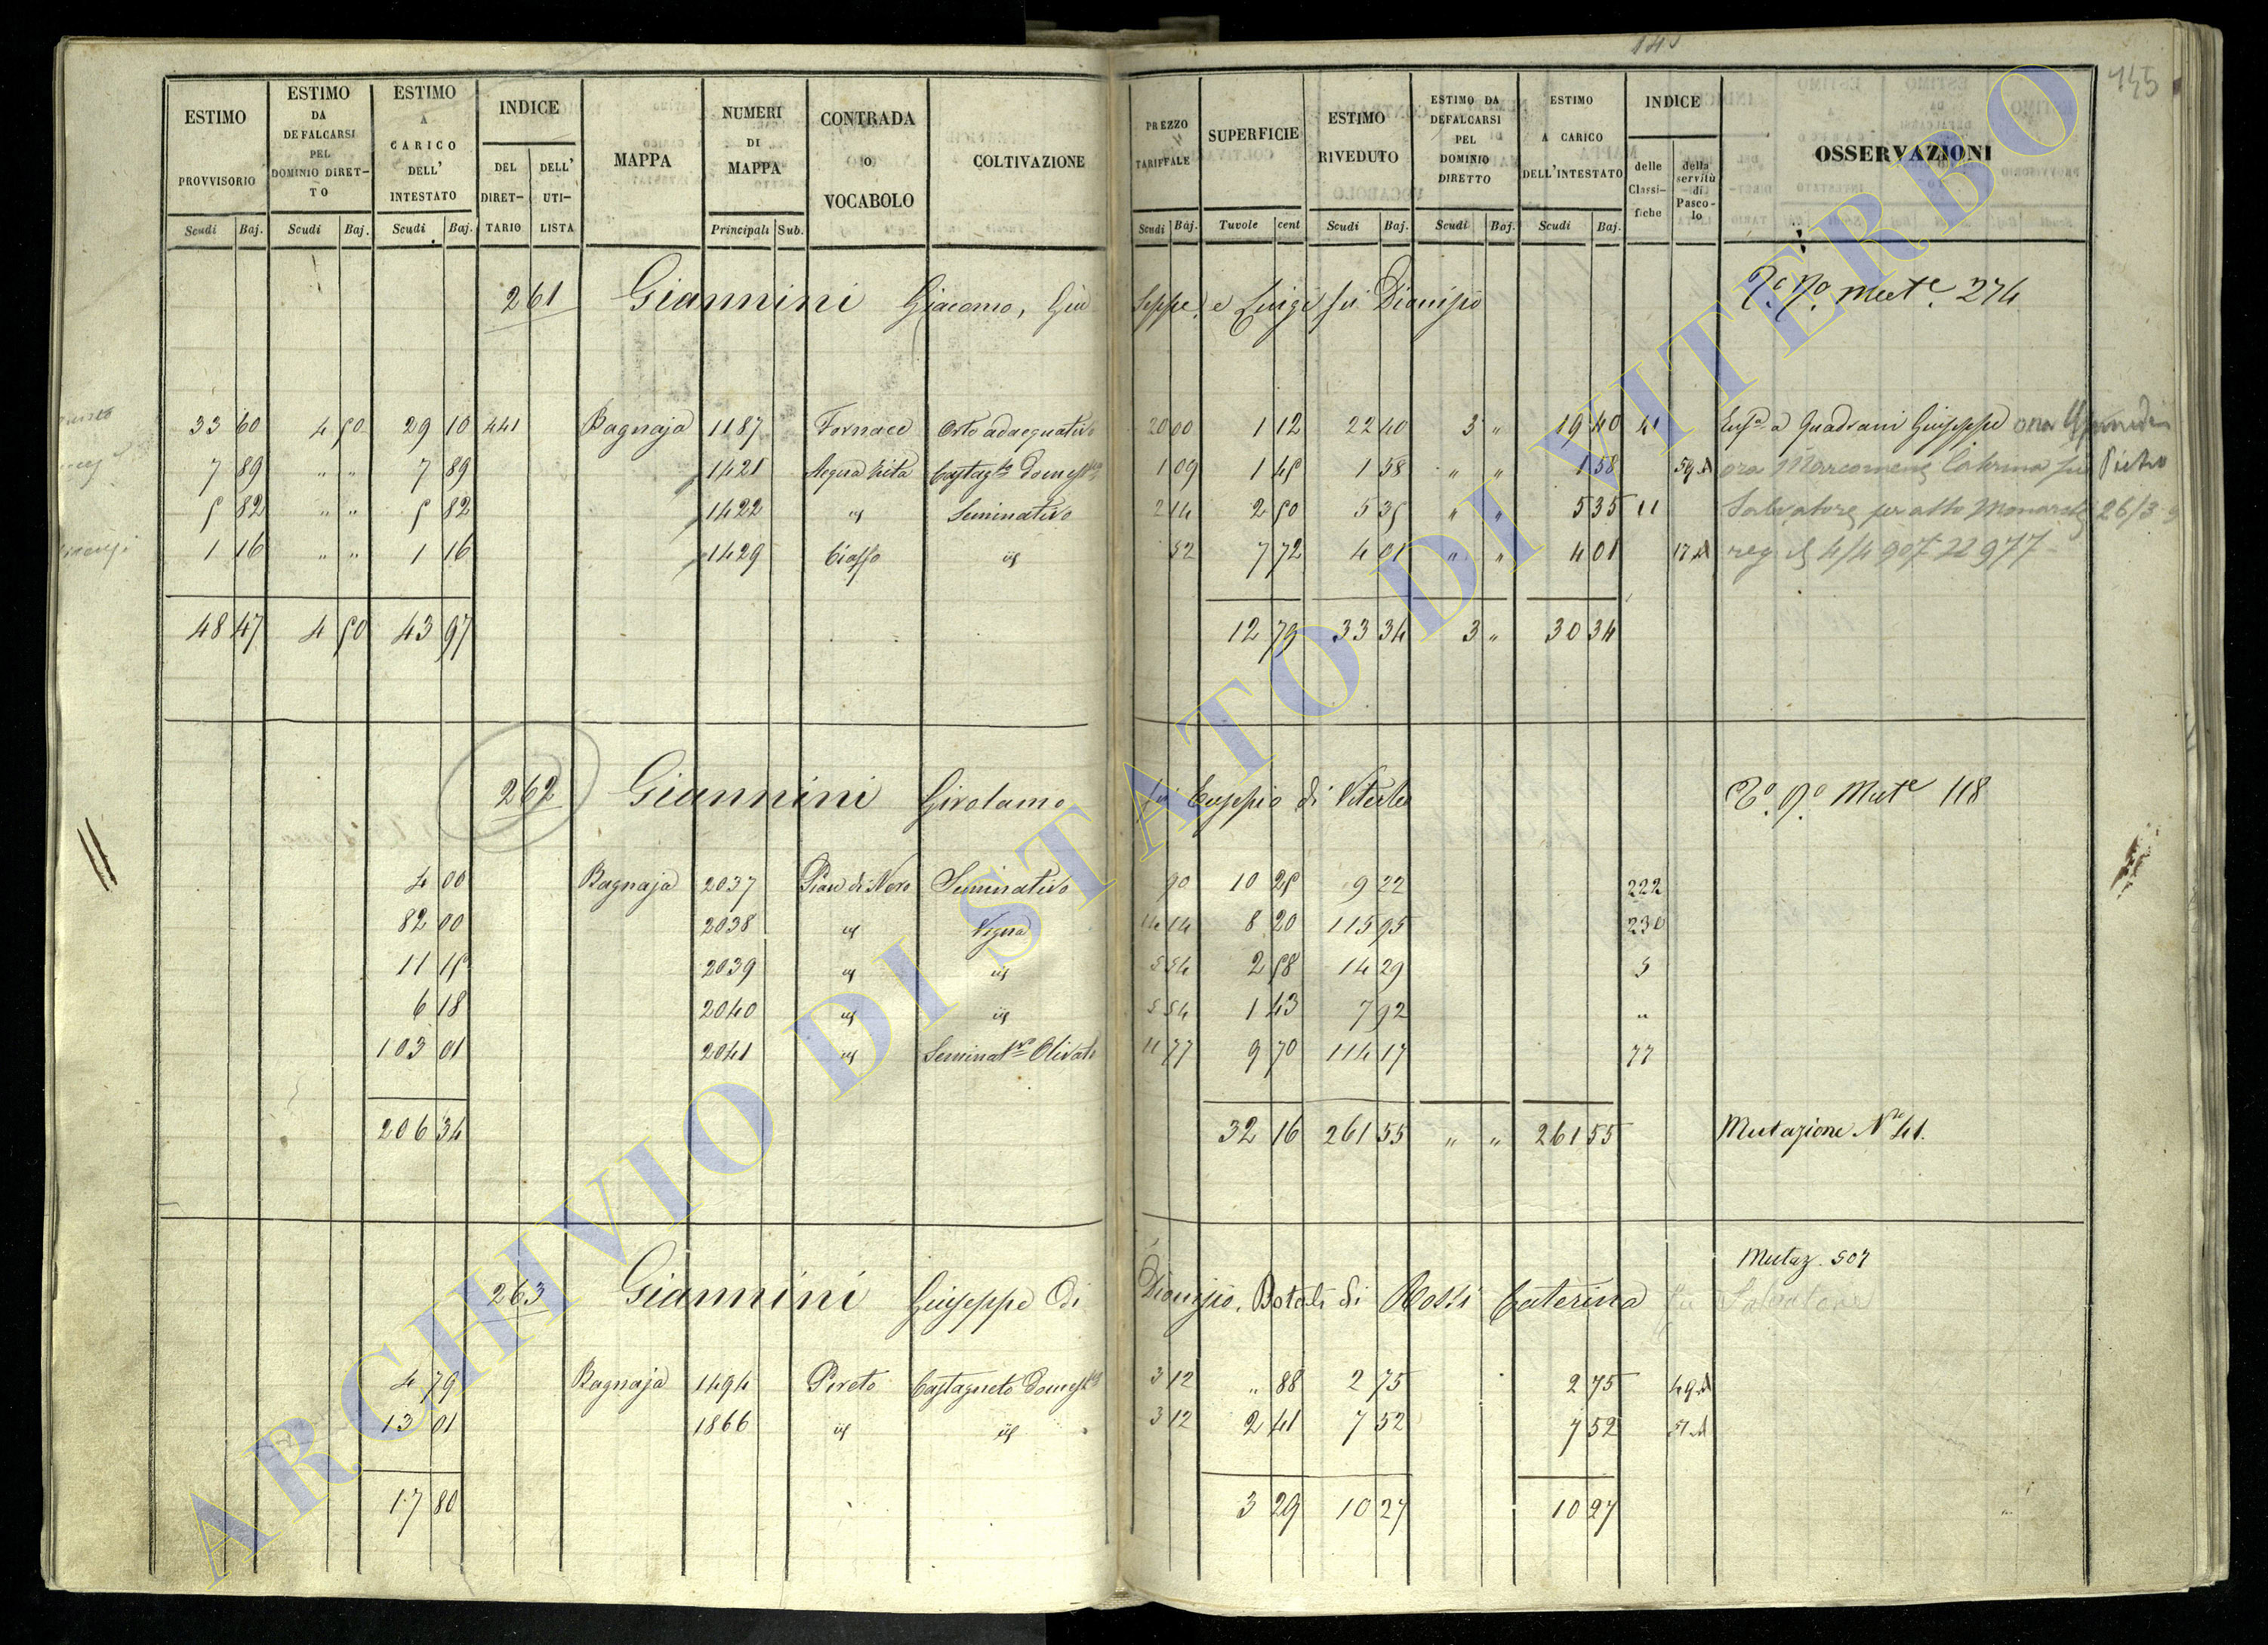 145
145
ESTIMO PROVVISORIO
ESTIMO DA DEFALCARSI PEL DOMINIO DIRET-TO
ESTIMO A CARICO DELL' INTESTATO
INDICE
DEL DIRET-TARIO
DELL' UTI-LISTA
MAPPA
NUMERI DI MAPPA
CONTRADA O VOCABOLO
COLTIVAZIONE
PREZZO TARIFFALE
SUPERFICIE
ESTIMO RIVEDUTO
ESTIMO DA DEFALCARSI PEL DOMINIO DIRETTO
ESTIMO A CARICO DELL'INTESTATO
INDICE
delle Classi-fiche
della servitù di Pasco-lo
OSSERVAZIONI
Scudi Baj. Scudi Baj. Scudi Baj. Principali Sub. Scudi Baj. Tavole cent Scudi Baj. Scudi Baj. Scudi Baj.
261 Giannini Giacomo, Giuseppe, e Luigi fu Dionisio Mut.e 274
33 60 4 50 29 10 441 Bagnaja 1187 Fornace Orto adacquativo 20 00 1 12 22 40 3 " 19 40 41 a Quadrani Giuseppe ora
7 89 " " 7 89 1421 Acqua Castag.to Domest.co 1 09 1 45 1 58 " " 1 58 59 ora Caterina fu Pietro
5 82 " " 5 82 1422 id Seminativo 2 14 2 50 5 35 " " 5 35 11 Salvatore per atto 26/3
1 16 " " 1 16 1429 id 52 7 72 4 01 " " 4 01 17 reg 4/4 907 22977
48 47 4 50 43 97 12 79 33 34 3 " 30 34
262 Giannini Girolamo fu di Viterbo Mut.e 118
4 00 Bagnaja 2037 Pian di Nero Seminativo 90 10 25 9 22 222
82 00 2038 id Vigna 14 14 8 20 115 95 230
11 15 2039 id id 5 54 2 58 14 29 5
6 18 2040 id id 5 54 1 43 7 92 "
103 01 2041 id Seminat.vo Olivato 11 77 9 70 114 17 77
206 34 32 16 261 55 " " 261 55 Mutazione N.o 41.
Mutaz. 507
263 Giannini Giuseppe di Dionisio, Dotali di Rossi Caterina fu Salvatore
4 79 Bagnaja 1494 Pireto Castagneto Domest.co 3 12 " 88 2 75 2 75 49
13 01 1866 id id 3 12 2 41 7 52 7 52 51
17 80 3 29 10 27 10 27
ARCHIVIO DI STATO DI VITERBO